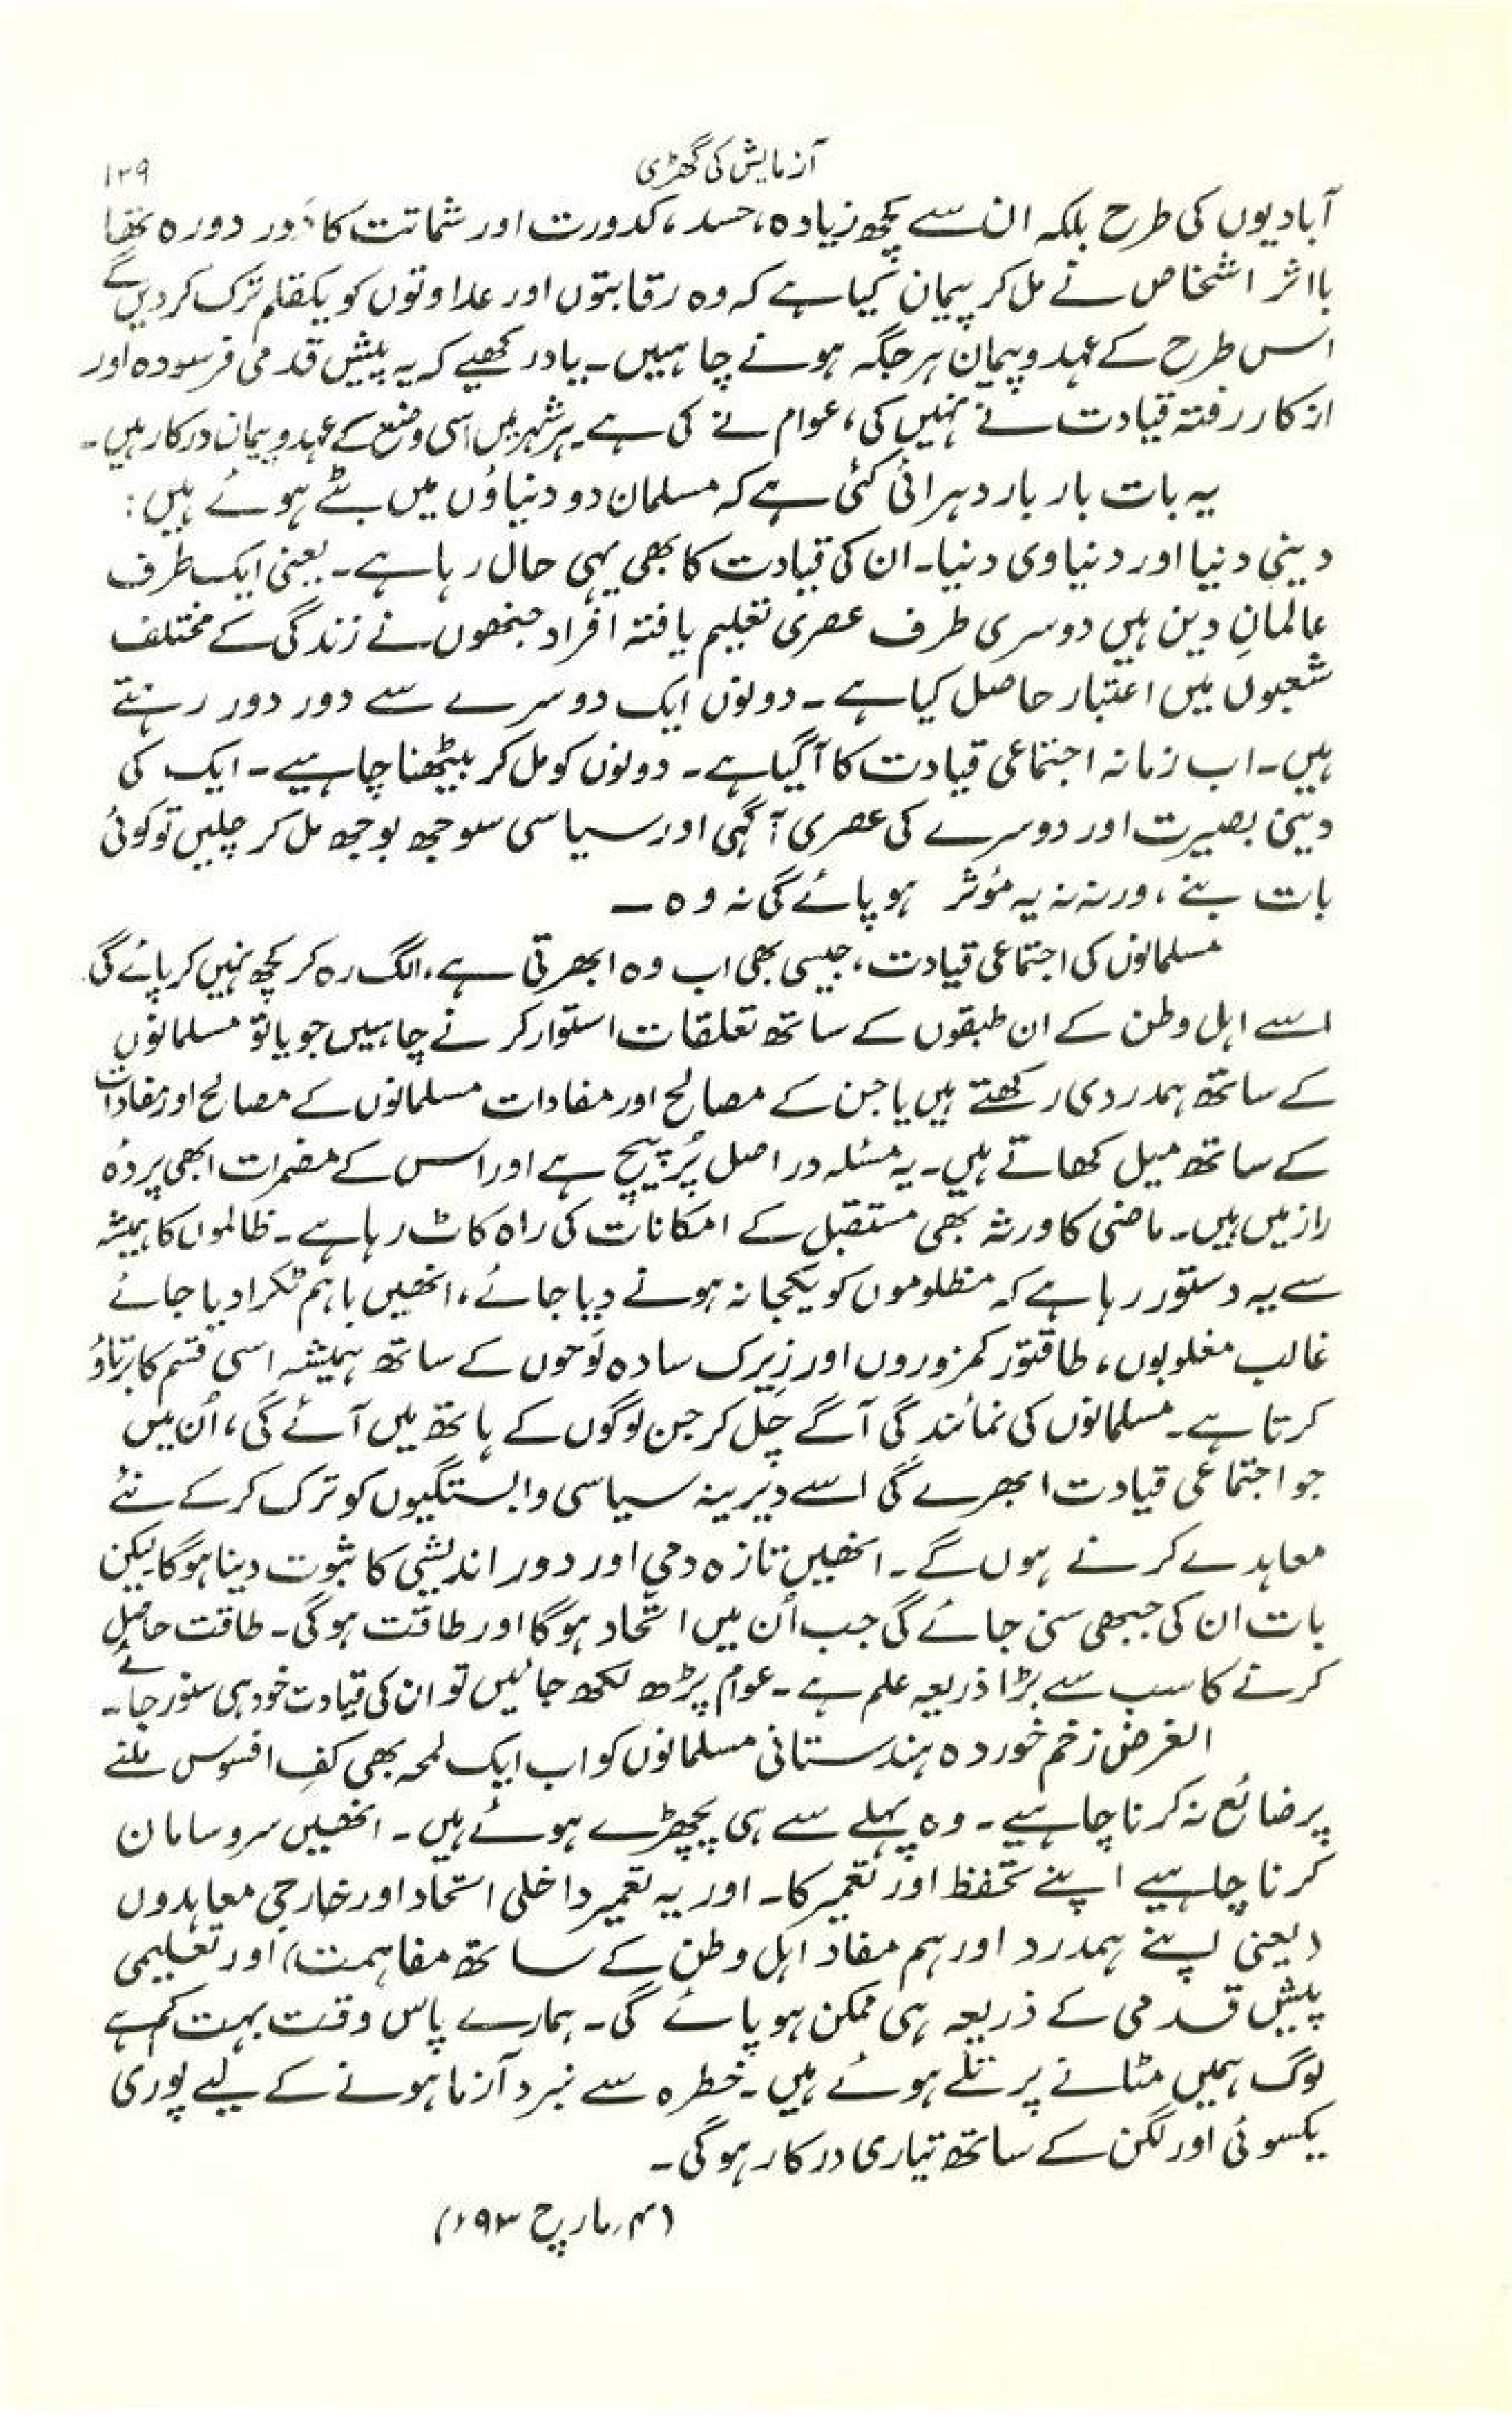 آزمایش کی گھڑی
۱۲۹
آبادیوں کی طرح بلکہ ان سے کچھ زیادہ، حسد، کدورت اور شماتت کا دَور دورہ تھا
بااثر اشخاص نے مل کر پیمان کیا ہے کہ وہ رقابتوں اور عداوتوں کو یکقلم ترک کر دیں گے
اس طرح کے عہد و پیمان ہر جگہ ہونے چاہییں۔ یاد رکھیے کہ یہ پیش قدمی فرسودہ اور
از کار رفتہ قیادت نے نہیں کی، عوام نے کی ہے۔ ہر شہر میں اسی وضع کے عہد و پیمان درکار ہیں۔
یہ بات بار بار دہرائی گئی ہے کہ مسلمان دو دنیاؤں میں بٹے ہوئے ہیں:
دینی دنیا اور دنیاوی دنیا۔ ان کی قیادت کا بھی یہی حال رہا ہے۔ یعنی ایک طرف
عالمانِ دین ہیں دوسری طرف عصری تعلیم یافتہ افراد جنھوں نے زندگی کے مختلف
شعبوں میں اعتبار حاصل کیا ہے۔ دونوں ایک دوسرے سے دور دور رہتے
ہیں۔ اب زمانہ اجتماعی قیادت کا آگیا ہے۔ دونوں کو مل کر بیٹھنا چاہیے۔ ایک کی
دینی بصیرت اور دوسرے کی عصری آگہی اور سیاسی سوجھ بوجھ مل کر چلیں تو کوئی
بات بنے، ورنہ نہ یہ مُوثر ہو پائے گی نہ وہ ۔
مسلمانوں کی اجتماعی قیادت، جیسی بھی اب وہ ابھرتی ہے، الگ رہ کر کچھ نہیں کر پائے گی۔
اسے اہل وطن کے ان طبقوں کے ساتھ تعلقات استوار کرنے چاہییں جو یا تو مسلمانوں
کے ساتھ ہمدردی رکھتے ہیں یا جن کے مصالح اور مفادات مسلمانوں کے مصالح اور مفادات
کے ساتھ میل کھاتے ہیں۔ یہ مسئلہ در اصل پُر پیچ ہے اور اس کے مضمرات ابھی پردۂ
راز میں ہیں۔ ماضی کا ورثہ بھی مستقبل کے امکانات کی راہ کاٹ رہا ہے۔ ظالموں کا ہمیشہ
سے یہ دستور رہا ہے کہ مظلوموں کو یکجا نہ ہونے دیا جائے، انھیں باہم ٹکرا دیا جائے
غالب مغلوبوں، طاقتور کمزوروں اور زیرک سادہ لَوحوں کے ساتھ ہمیشہ اسی قسم کا برتاؤ
کرتا ہے۔ مسلمانوں کی نمائندگی آگے چَل کر جن لوگوں کے ہاتھ میں آئے گی، اُن میں
جو اجتماعی قیادت ابھرے گی اسے دیرینہ سیاسی وابستگیوں کو ترک کر کے نئے
معاہدے کرنے ہوں گے۔ انھیں تازہ دمی اور دور اندیشی کا ثبوت دینا ہوگا لیکن
بات ان کی جبھی سنی جائے گی جب اُن میں اتحاد ہوگا اور طاقت ہوگی۔ طاقت حاصل
کرنے کا سب سے بڑا ذریعہ علم ہے۔ عوام پڑھ لکھ جائیں تو ان کی قیادت خود ہی سنور جائے۔
الغرض زخم خوردہ ہندستانی مسلمانوں کو اب ایک لمحہ بھی کفِ افسوس ملنے
پر ضائع نہ کرنا چاہیے۔ وہ پہلے سے ہی پچھڑے ہوئے ہیں۔ انھیں سروسامان
کرنا چاہیے اپنے تحفظ اور تعمیر کا۔ اور یہ تعمیر داخلی اتحاد اور خارجی معاہدوں
(یعنی اپنے ہمدرد اور ہم مفاد اہل وطن کے ساتھ مفاہمت) اور تعلیمی
پیش قدمی کے ذریعہ ہی ممکن ہو پائے گی۔ ہمارے پاس وقت بہت کم ہے
لوگ ہمیں مٹانے پر تُلے ہوئے ہیں۔ خطرہ سے نبرد آزما ہونے کے لیے پوری
یکسوئی اور لگن کے ساتھ تیاری درکار ہوگی۔
(۴؍مارچ ۹۳ء)